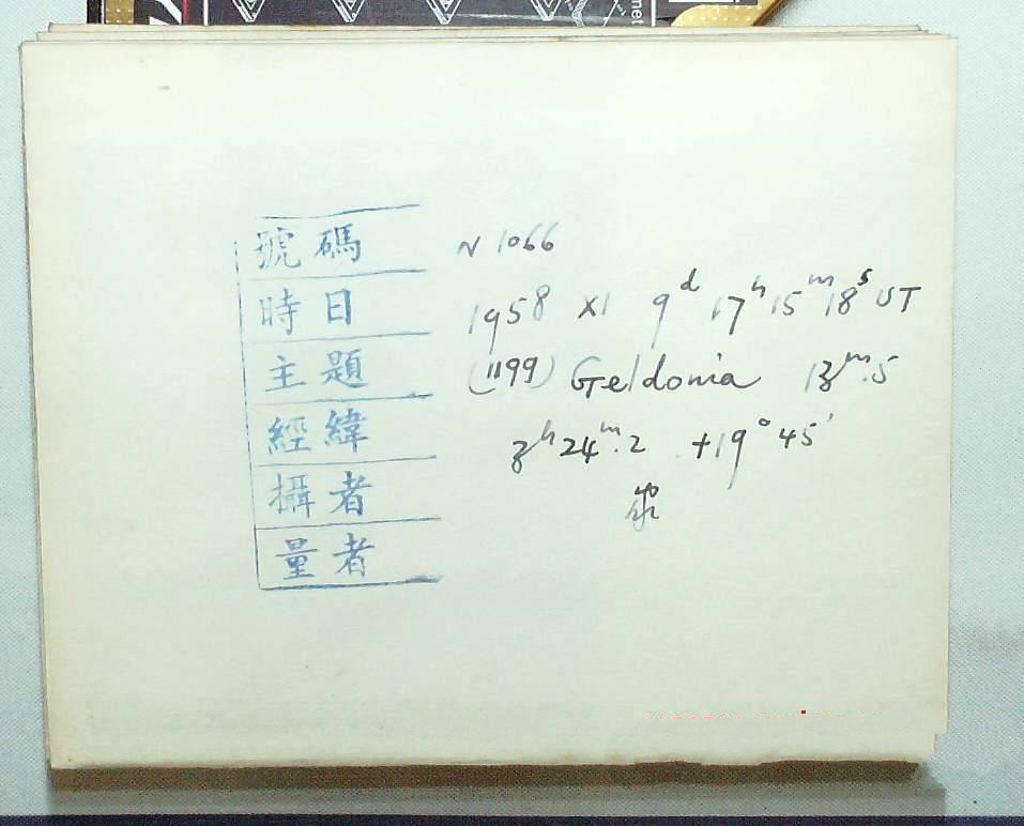 號碼 N 1066
時日 1958 XI 9ᵈ 17ʰ 15ᵐ 18ˢ UT
主題 (1199) Geldonia 13ᵐ.5
經緯 3ʰ 24ᵐ.2 +19° 45'
攝者
量者